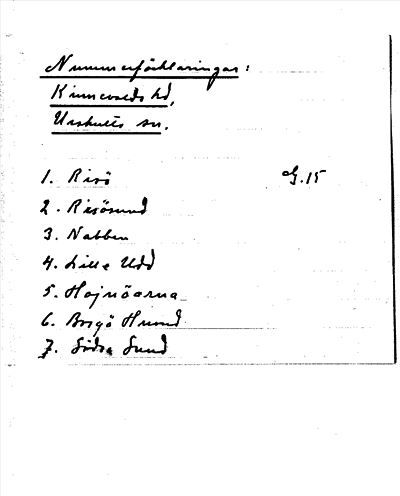 Nummerförklaringar:
Kinnevalds hd,
Urshults sn.
1. Risö G.15
2. Risösund
3. Nabben
4. Lille Udd
5. Hojnöarna
6. Borgö Huvud
7. Södra Sund